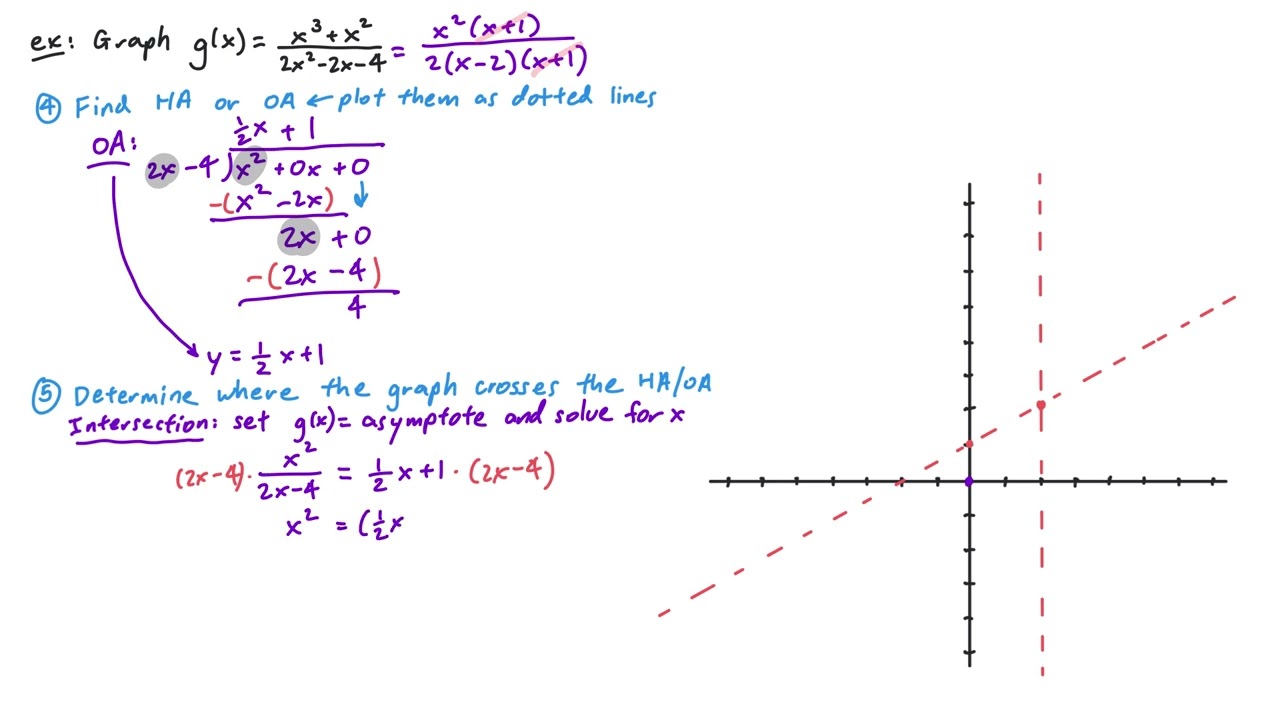 ex: Graph g(x) = x³+x² / 2x²-2x-4 = x²(x+1) / 2(x-2)(x+1)
④ Find HA or OA ← plot them as dotted lines
OA:
½x + 1
2x -4 ) x² +0x +0
-(x² -2x) ↓
2x +0
-(2x -4)
4
y = ½x+1
⑤ Determine where the graph crosses the HA/OA
Intersection: set g(x)= asymptote and solve for x
(2x-4)· x² / 2x-4 = ½x+1 ·(2x-4)
x² = (½x